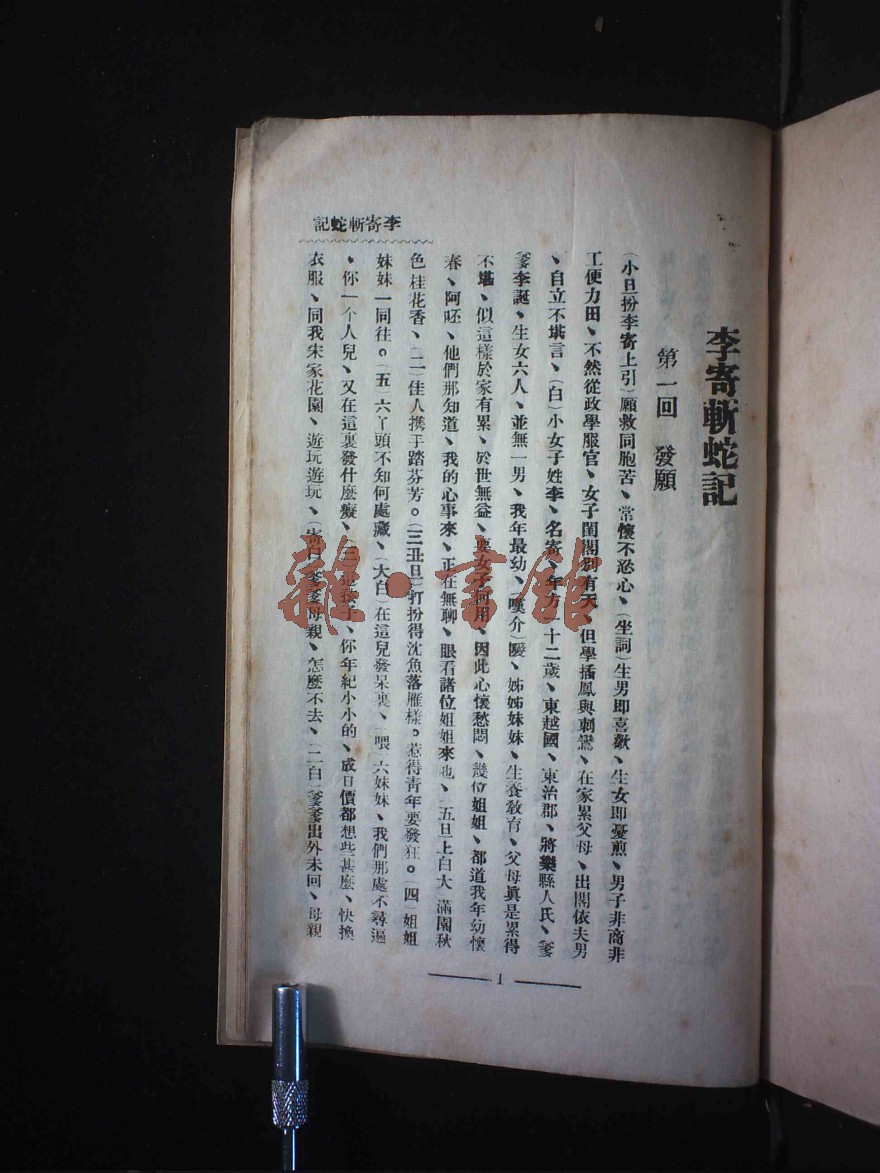 李寄斬蛇記
第一回　發願
(小旦扮李寄上引)願救同胞苦、常懷不忍心、(坐詞)生男即喜歡、生女即憂煎、男子非商非
工便力田、不然從政學服官、女子閨閣別有天、但學描鳳與刺鸞、在家累父母、出閣依夫男
、自立不堪言、(白)小女子姓李、名寄、年方一十二歲、東越國、東治郡、將樂縣人氏、爹
爹李誕、生女六人、並無一男、我年最幼、(嘆介)噯、姊姊妹妹、生養敎育、父母眞是累得
不堪、似這樣於家有累、於世無益、要女子何用、因此心懷愁悶、幾位姐姐、都道我年幼懷
春、阿呸、他們那知道、我的心事來、正在無聊、眼看諸位姐姐來也、(五旦上白大)滿園秋
色桂花香、(二)佳人携手踏芬芳。(三丑旦)打扮得沈魚落雁樣。惹得靑年要發狂。(四)姐姐
妹妹一同往。(五)六丫頭不知何處藏、(大白)在這兒發呆裏、(喂)六妹妹、我們那處不尋遍
、你一个人兒、又在這裏發什麼癡、(三)你年紀小小的、成日價都想些甚麼、快換
衣服、同我宋家花園、遊玩遊玩、(寄白)爹爹母親、怎麼不去、(二白)爹爹出外未回、母親
李寄斬蛇記
1
雜·書館